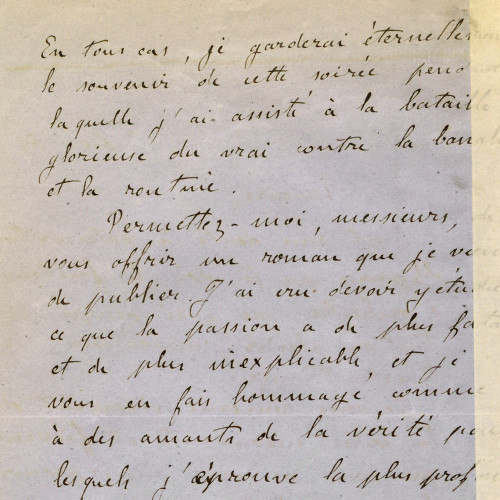 En tous cas, je garderai éternelle
le souvenir de cette soirée pend
laquelle j'ai assisté à la bataille
glorieuse du vrai contre la ban
et la routine.
Permettez-moi, messieurs,
vous offrir un roman que je
de publier. J'ai cru devoir y étu
ce que la passion a de plus fa
et de plus inexplicable, et je
vous en fais hommage comme
à des amants de la vérité pou
lesquels j'éprouve la plus prof